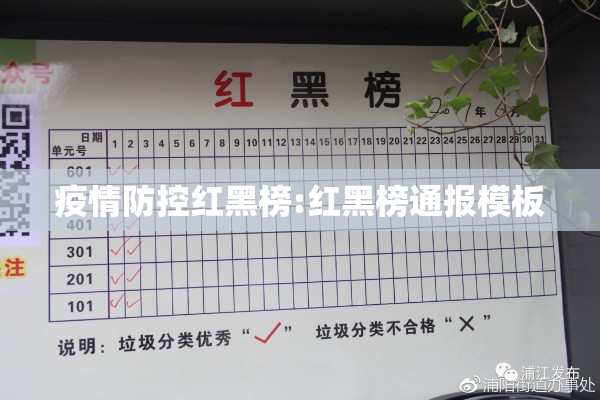 众号
红黑榜
2019年6月
日期
单元号
1 2 3 4 5 6 7 8 9 10 11 12 13 14 15 16 17 18 19 20 21 22 23 24 25 26 27 28 29 30 31
601
疫情防控红黑榜:红黑榜通报模板
401
301
201
101
关注
说明：垃圾分类优秀“✓” 垃圾分类不合格“×”
浦江发布
浦阳街道办事处